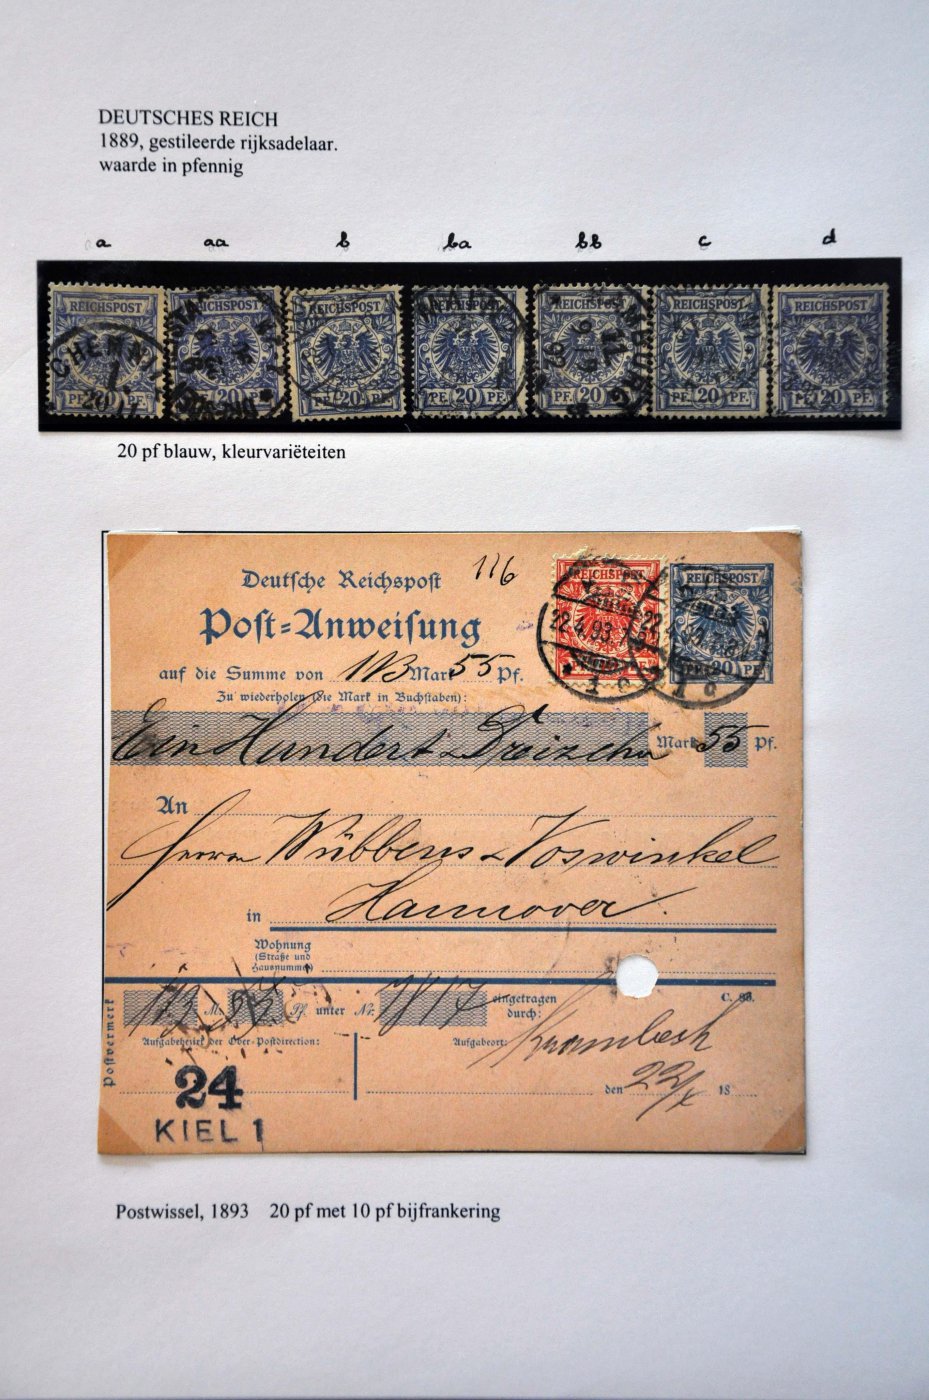 DEUTSCHES REICH
1889, gestileerde rijksadelaar.
waarde in pfennig
a aa b ba bb c d
REICHSPOST REICHSPOST REICHSPOST REICHSPOST REICHSPOST REICHSPOST
PF. 20 PF. PF. 20 PF. PF. 20 PF. PF. 20 PF. PF. 20 PF. PF. 20 PF. PF. 20 PF.
20 pf blauw, kleurvariëteiten
Deutsche Reichspost
116
REICHSPOST REICHSPOST
Post-Anweisung
22.4.93.
PF. 20 PF.
auf die Summe von 113 Mark 55 Pf.
Zu wiederholen (die Mark in Buchstaben):
Ein Hundert Dreizehn Mark 55 Pf.
An
Herren Wübbens & Voswinkel
in Hannover.
Wohnung
(Straße und
Hausnummer)
C. 93.
Postvermerk
113 M. Pf. unter Nr. eingetragen
durch:
Aufgabebezirk der Ober-Postdirection:
Aufgabeort:
24
KIEL 1
den 18
Postwissel, 1893 20 pf met 10 pf bijfrankering